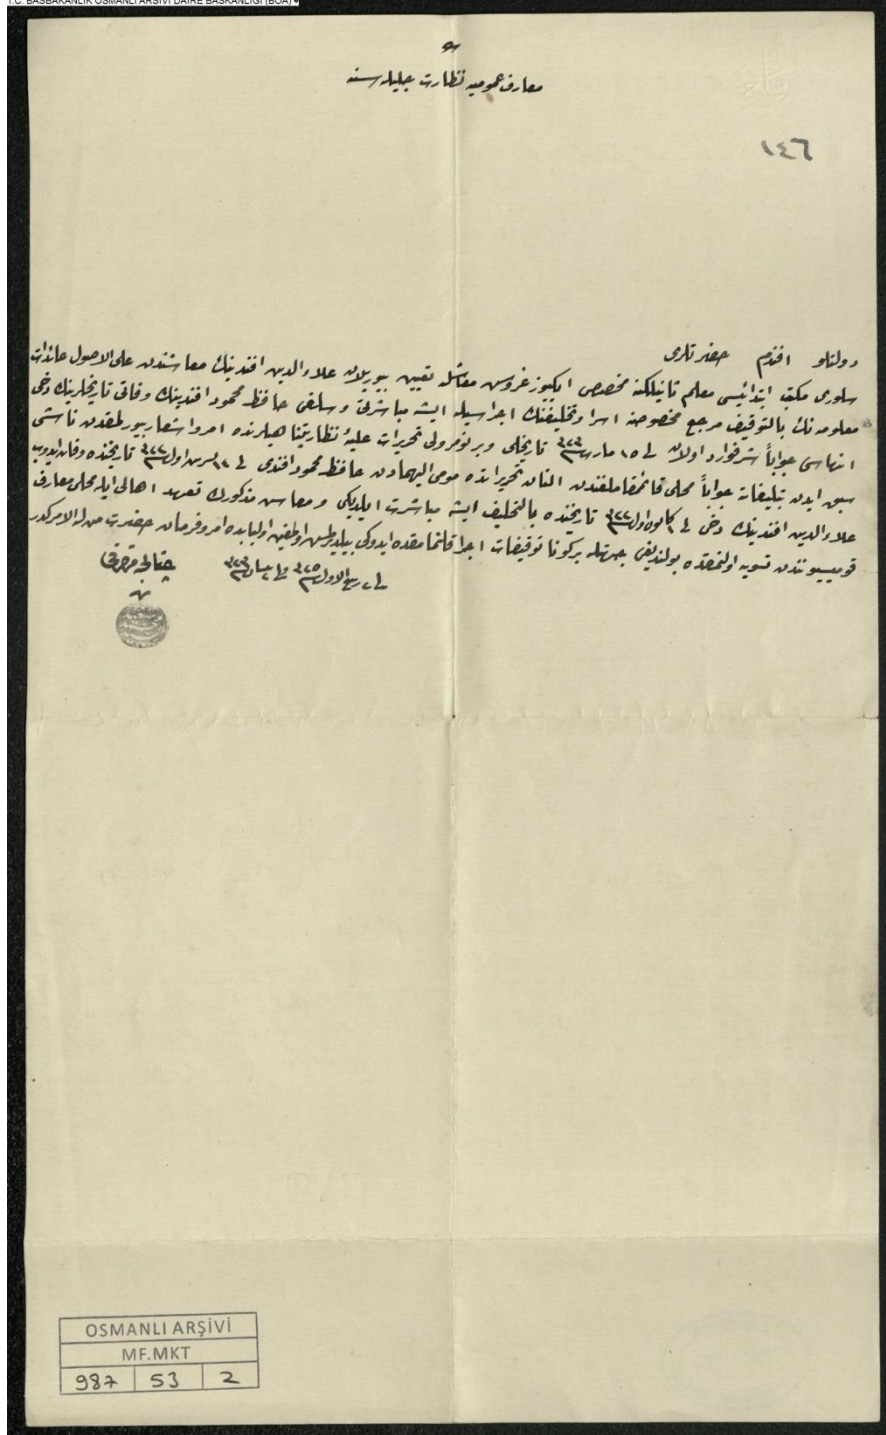 T.C. BAŞBAKANLIK OSMANLI ARŞİVİ DAİRE BAŞKANLIĞI (BOA)
معارف عموميه نظارت جليله سنه
١٤٦
دولتلو افندم حضرتلرى
سلورى مكتب ابتدائيسى معلم ثانيلكنه مخصص ايكيوز غروش معاشله تعيين بيوريلان علاءالدين افندينك معاشندن على الاصول عائدات
معلومه نك بالتوقيف مرجع مخصوصنه اسرا وتحليفنك اجراسيله ايشه مباشرتى وسلفى حافظ محمود افندينك وفاتى تاريخلرينك دخى
انهاسى جواباً شرفوارد اولان فى ١٥ مارت ٣٢٣ تاريخلى وبر نومرولى تحريرات عليۀ نظارتپناهيلرنده امر واشعار بيورلمقدن ناشى
سبق ايدن تبليغات جواباً محلى قائمقاملغندن النان تحريراتده مومى اليهمادن حافظ محمود افندى فى ١٢ تشرين اول ٣٢٢ تاريخنده وفات ايدوب
علاءالدين افندينك دخى فى ١ كانون اول ٣٢٢ تاريخنده بالتحليف ايشه مباشرت ايلديكى ومعاش مذكورك تعهد اهالى ايله محلى معارف
قوميسيونندن تسويه اولنمقده بولنديغى جهتله بركونا توقيفات اجرا قلنمامقده ايدوكى بيلديرلمش اولمغين اولبابده امر وفرمان حضرت من له الامركدر
فى ٢ ربيع الاول ٣٢٥ وفى ٢ نيسان ٣٢٣
چتالجه متصرفى
OSMANLI ARŞİVİ
MF.MKT
987 53 2